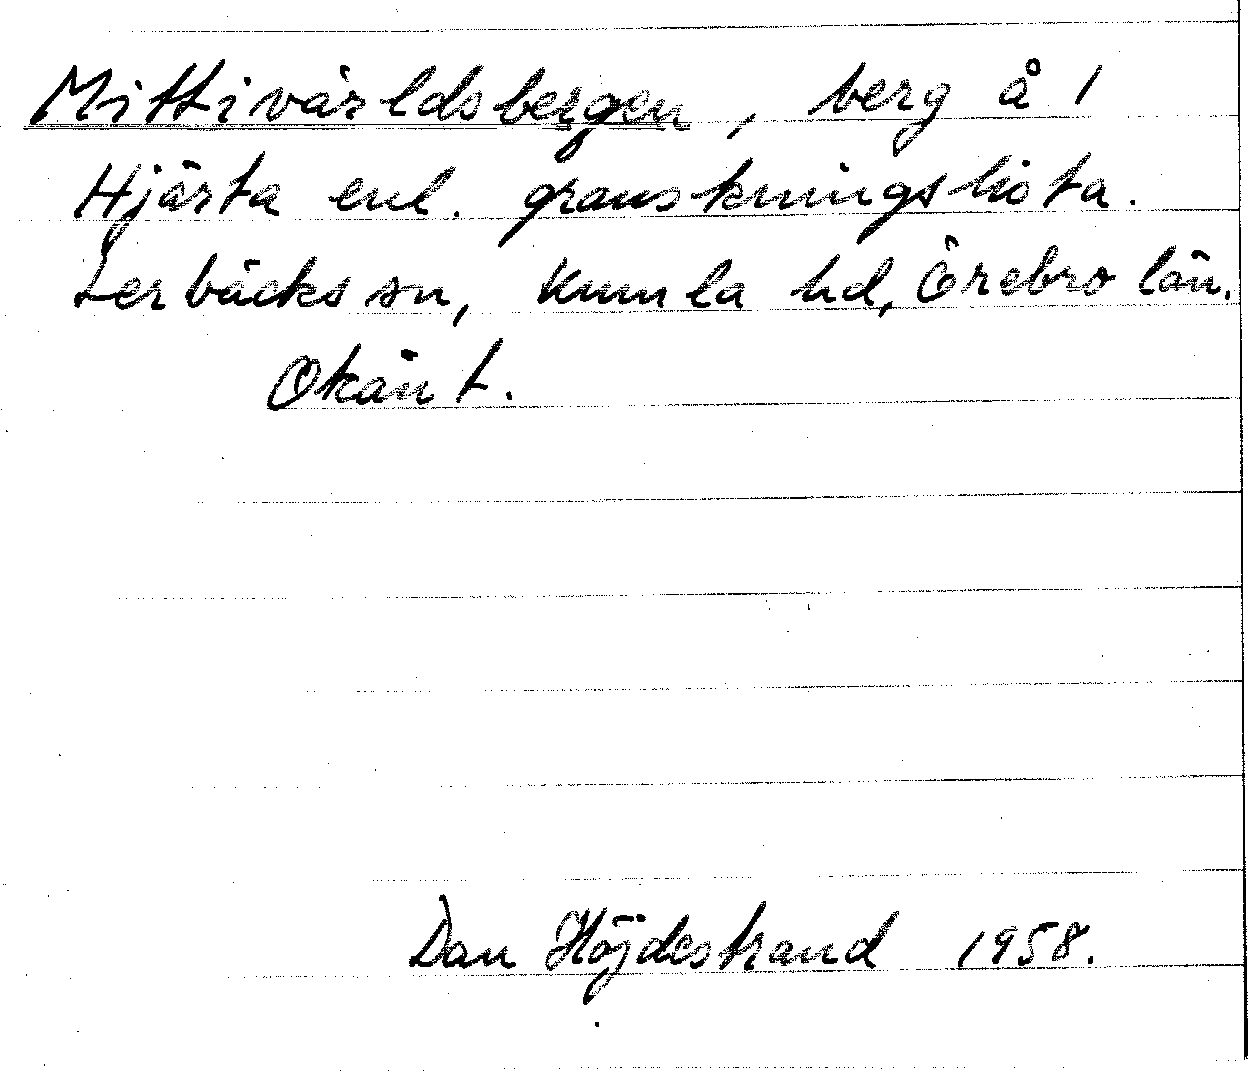 Mittivärldsbergen, berg å 1
Hjärta enl. granskningslista.
Lerbäcks sn, Kumla hd, Örebro län.
Okänt.
Dan Höjdestrand 1958.